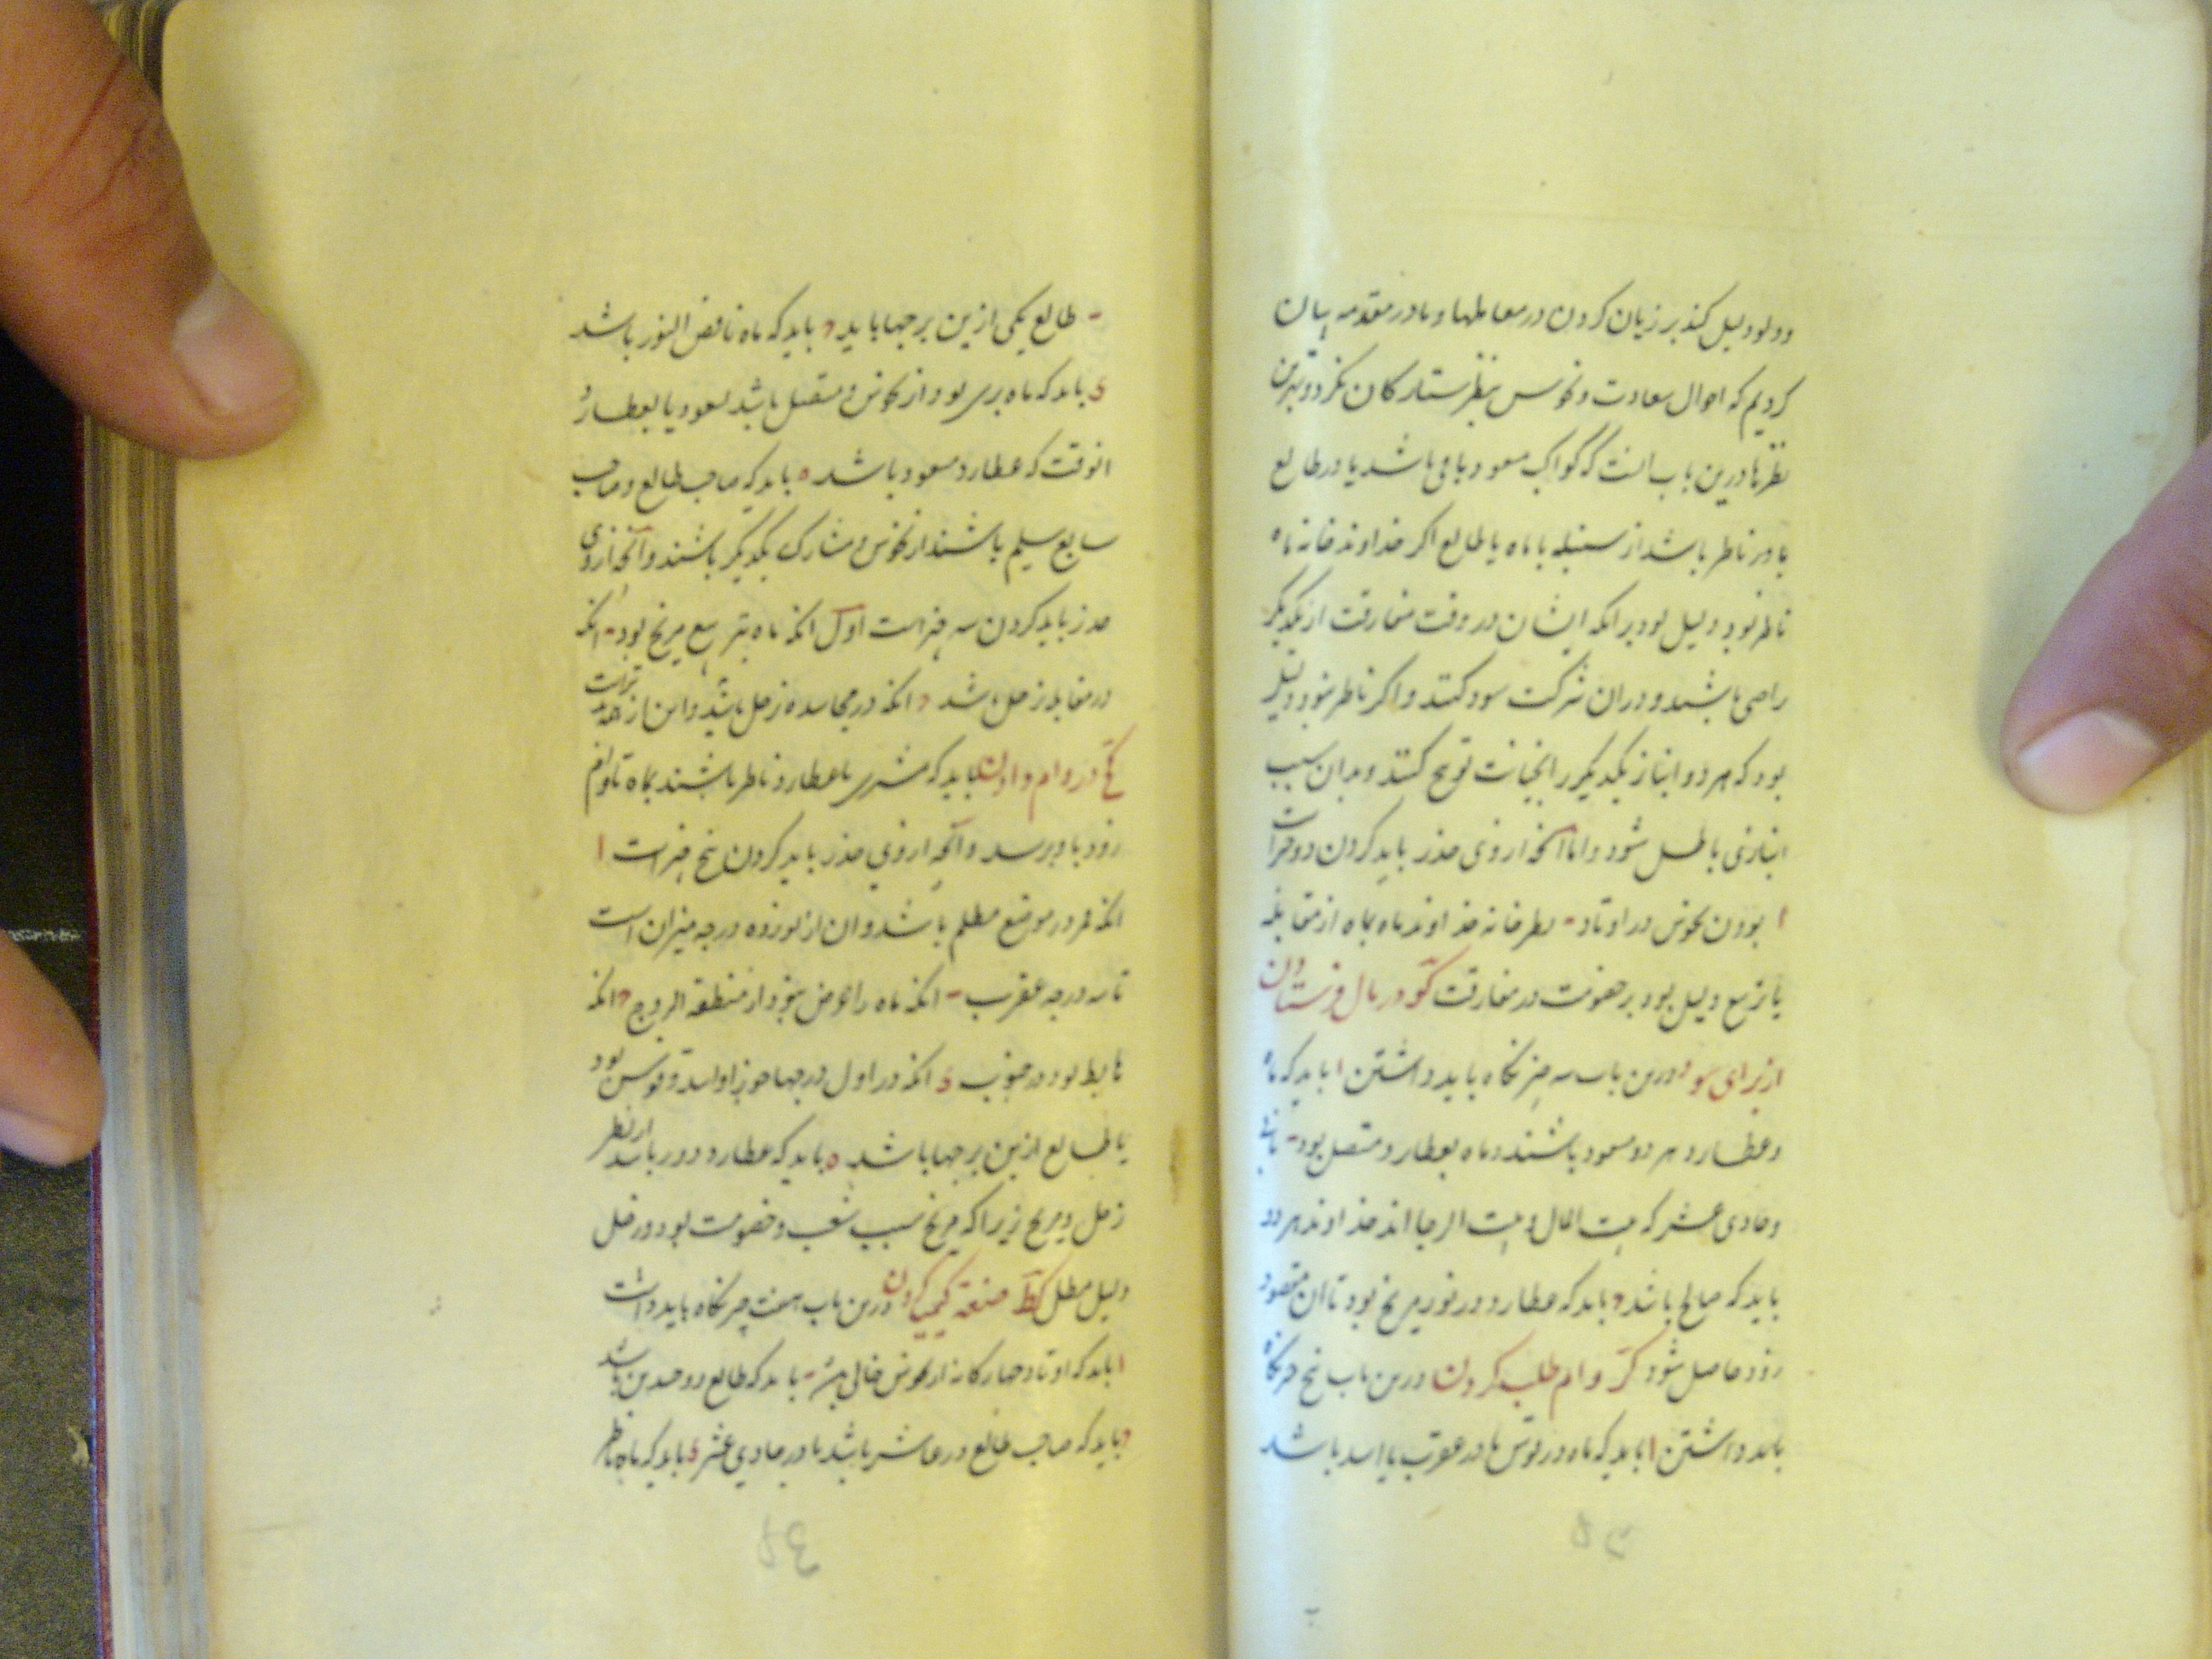 ودلو دلیل کند بر زیان کردن در معاملها و ما در مقدمه بیان
کردیم که احوال سعادت و نحوس بنظر ستارکان نکرد و بهترین
نظرها درین باب انست که کواکب مسعود با وی باشد یا در طالع
یا وبر ناظر باشد از سنبله با ماه یا طالع اکر خداوند خانه ماه
ناظر بود دلیل بود بر انکه ایشان در وقت مفارقت از یکدیکر
راضی باشند و در ان شرکت سود کنند و اکر ناظر نبود دلیل
بود که هر دو انباز یکدیکر را بخیانت کنند و بدان سبب
انبازی باطل شود و اما آنچه ازوی حذر باید کردن دو چیز است
ا بودن نحوس در اوتاد ب نظر خانه خداوند ماه بماه از مقابله
یا تربیع دلیل بود بر خصومت در مفارقت کو در مال فرستادن
از برای سود درین باب سه چیز نکاه باید داشتن ا باید که ماه
وعطارد هر دو مسعود باشند و ماه بعطارد متصل بود ب ثانی
وحادی عشر که بیت المال و بیت الرجا اند خداوند هر دو
باید که صالح باشد ج باید که عطارد در نور مریخ بود تا ان مقصود
زود حاصل شود کز وام طلب کردن درین باب پنج چیز نکاه
باید داشتن ا باید که ماه در قوس یا در عقرب یا اسد باشد
ب طالع یکی ازین برجها باید ج باید که ماه ناقص النور باشد
د باید که ماه بری بود از نحوس و متصل باشد بسعود یا بعطارد
انوقت که عطارد مسعود باشد ه باید که صاحب طالع وصاحب
سابع سلیم باشند از نحوس و مشارک یکدیکر باشند و آنچه ازوی
حذر باید کردن سه چیز است اول انکه ماه بتربیع مریخ بود ب انکه
در مقابله زحل باشد ج انکه در مجاسده زحل باشد و این از همه بترست
کح در وام دادن باید که مشتری یا عطارد ناظر باشند بماه تا وام
زود باو برسد و آنچه ازوی حذر باید کردن پنج چیز است ا
انکه قمر در موضع مظلم باشد و ان از نوزده درجه میزان است
تا سه درجه عقرب ب انکه ماه را عرض نبود از منطقة البروج ج انکه
هابط بود در جنوب د انکه در اول درجها جوزا و اسد و قوس بود
یا طالع ازین برجها باشد ه باید که عطارد دور باشد از نظر
زحل و مریخ زیرا که مریخ سبب شغب و خصومت بود و زحل
دلیل مطل کط صنعة کیمیا کردن درین باب هفت چیز نکاه باید داشت
ا باید که اوتاد چهارکانه از نحوس خالی ب باید که طالع ذو جسدین باشد
ج باید که صاحب طالع در عاشر باشد یا در حادی عشر د باید که ماه ناظر